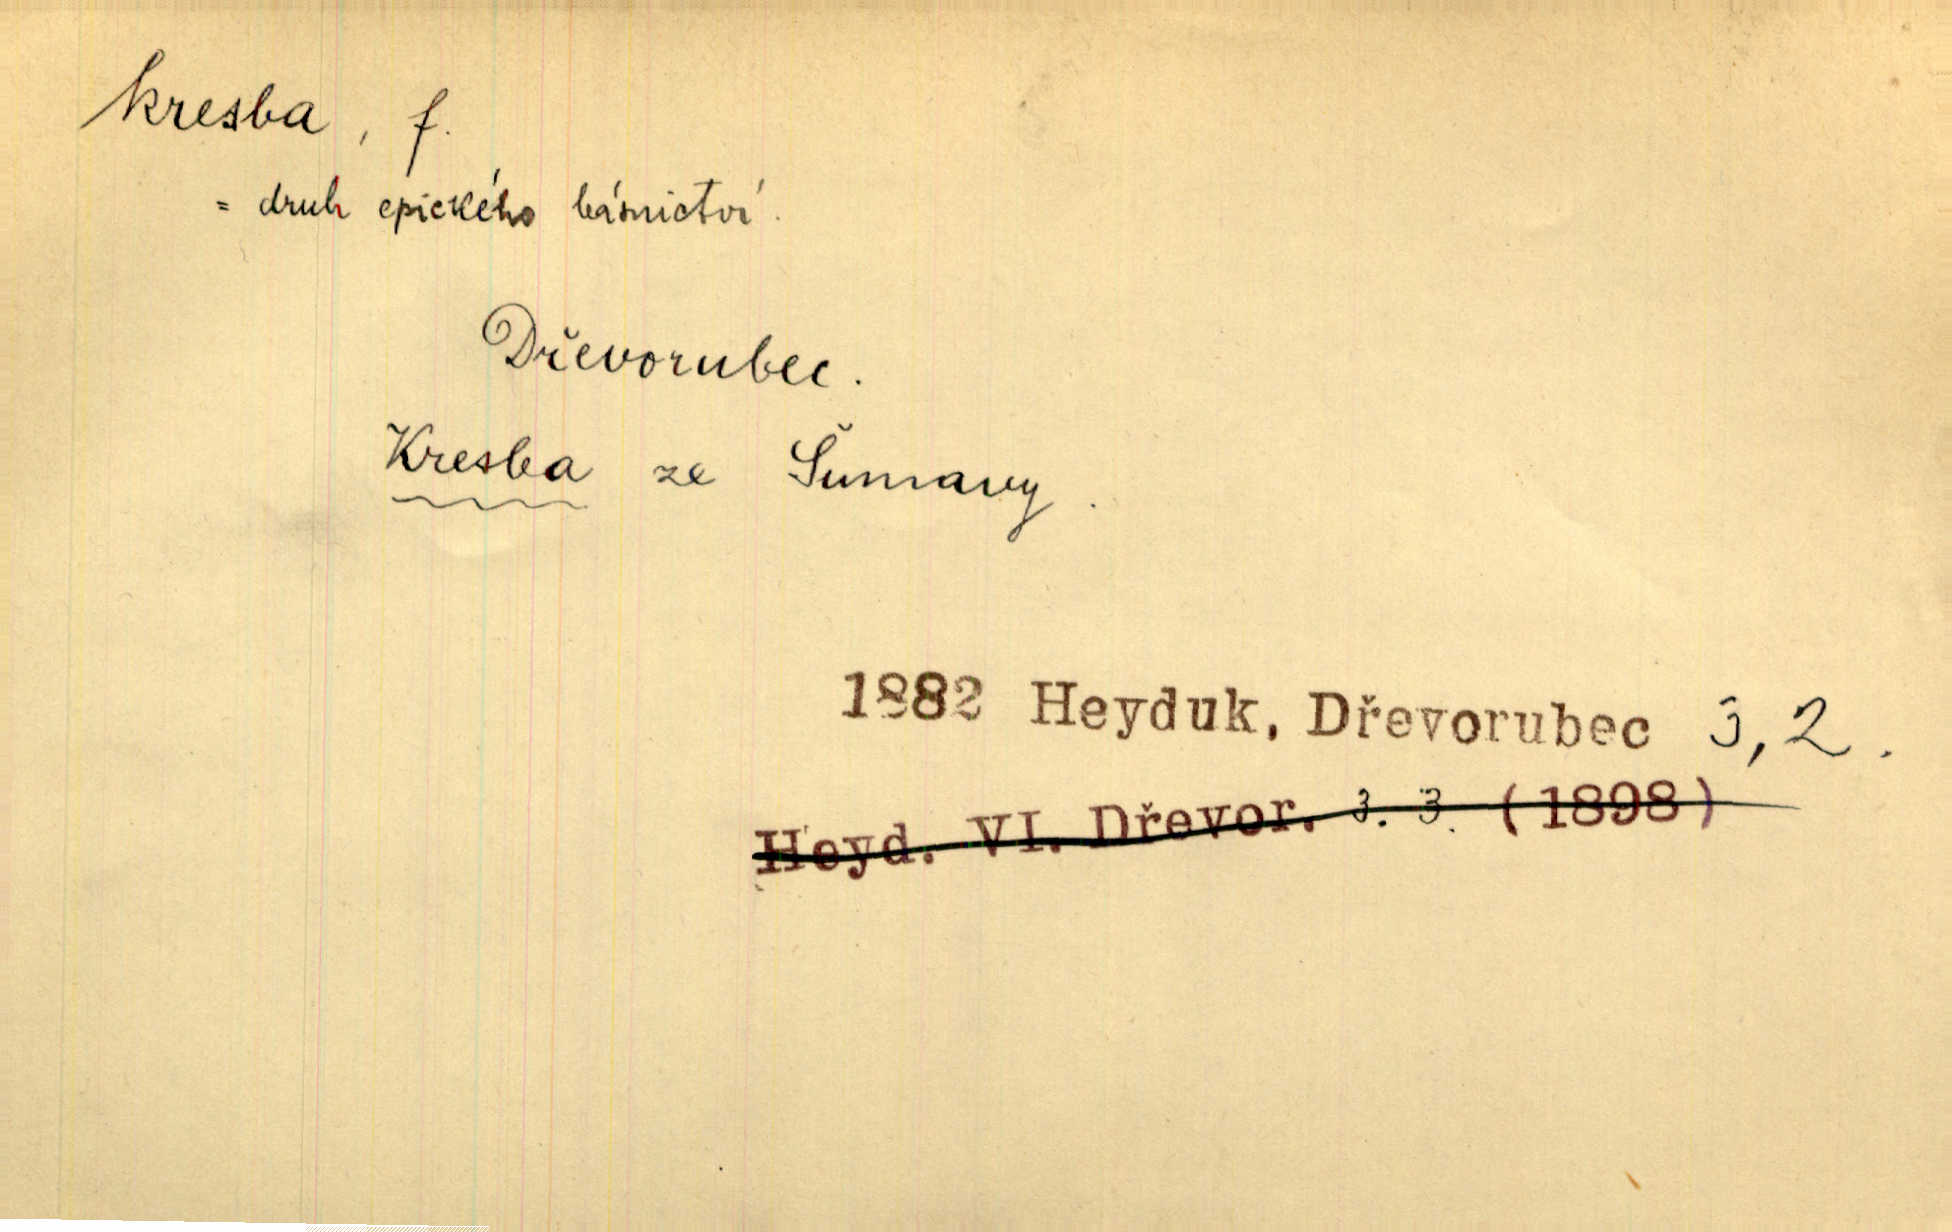 kresba, f.
= druh epického básnictví.
Dřevorubec.
Kresba ze Šumavy.
1882 Heyduk, Dřevorubec 3,2.
Heyd. VI. Dřevor. 3. 3. (1898)